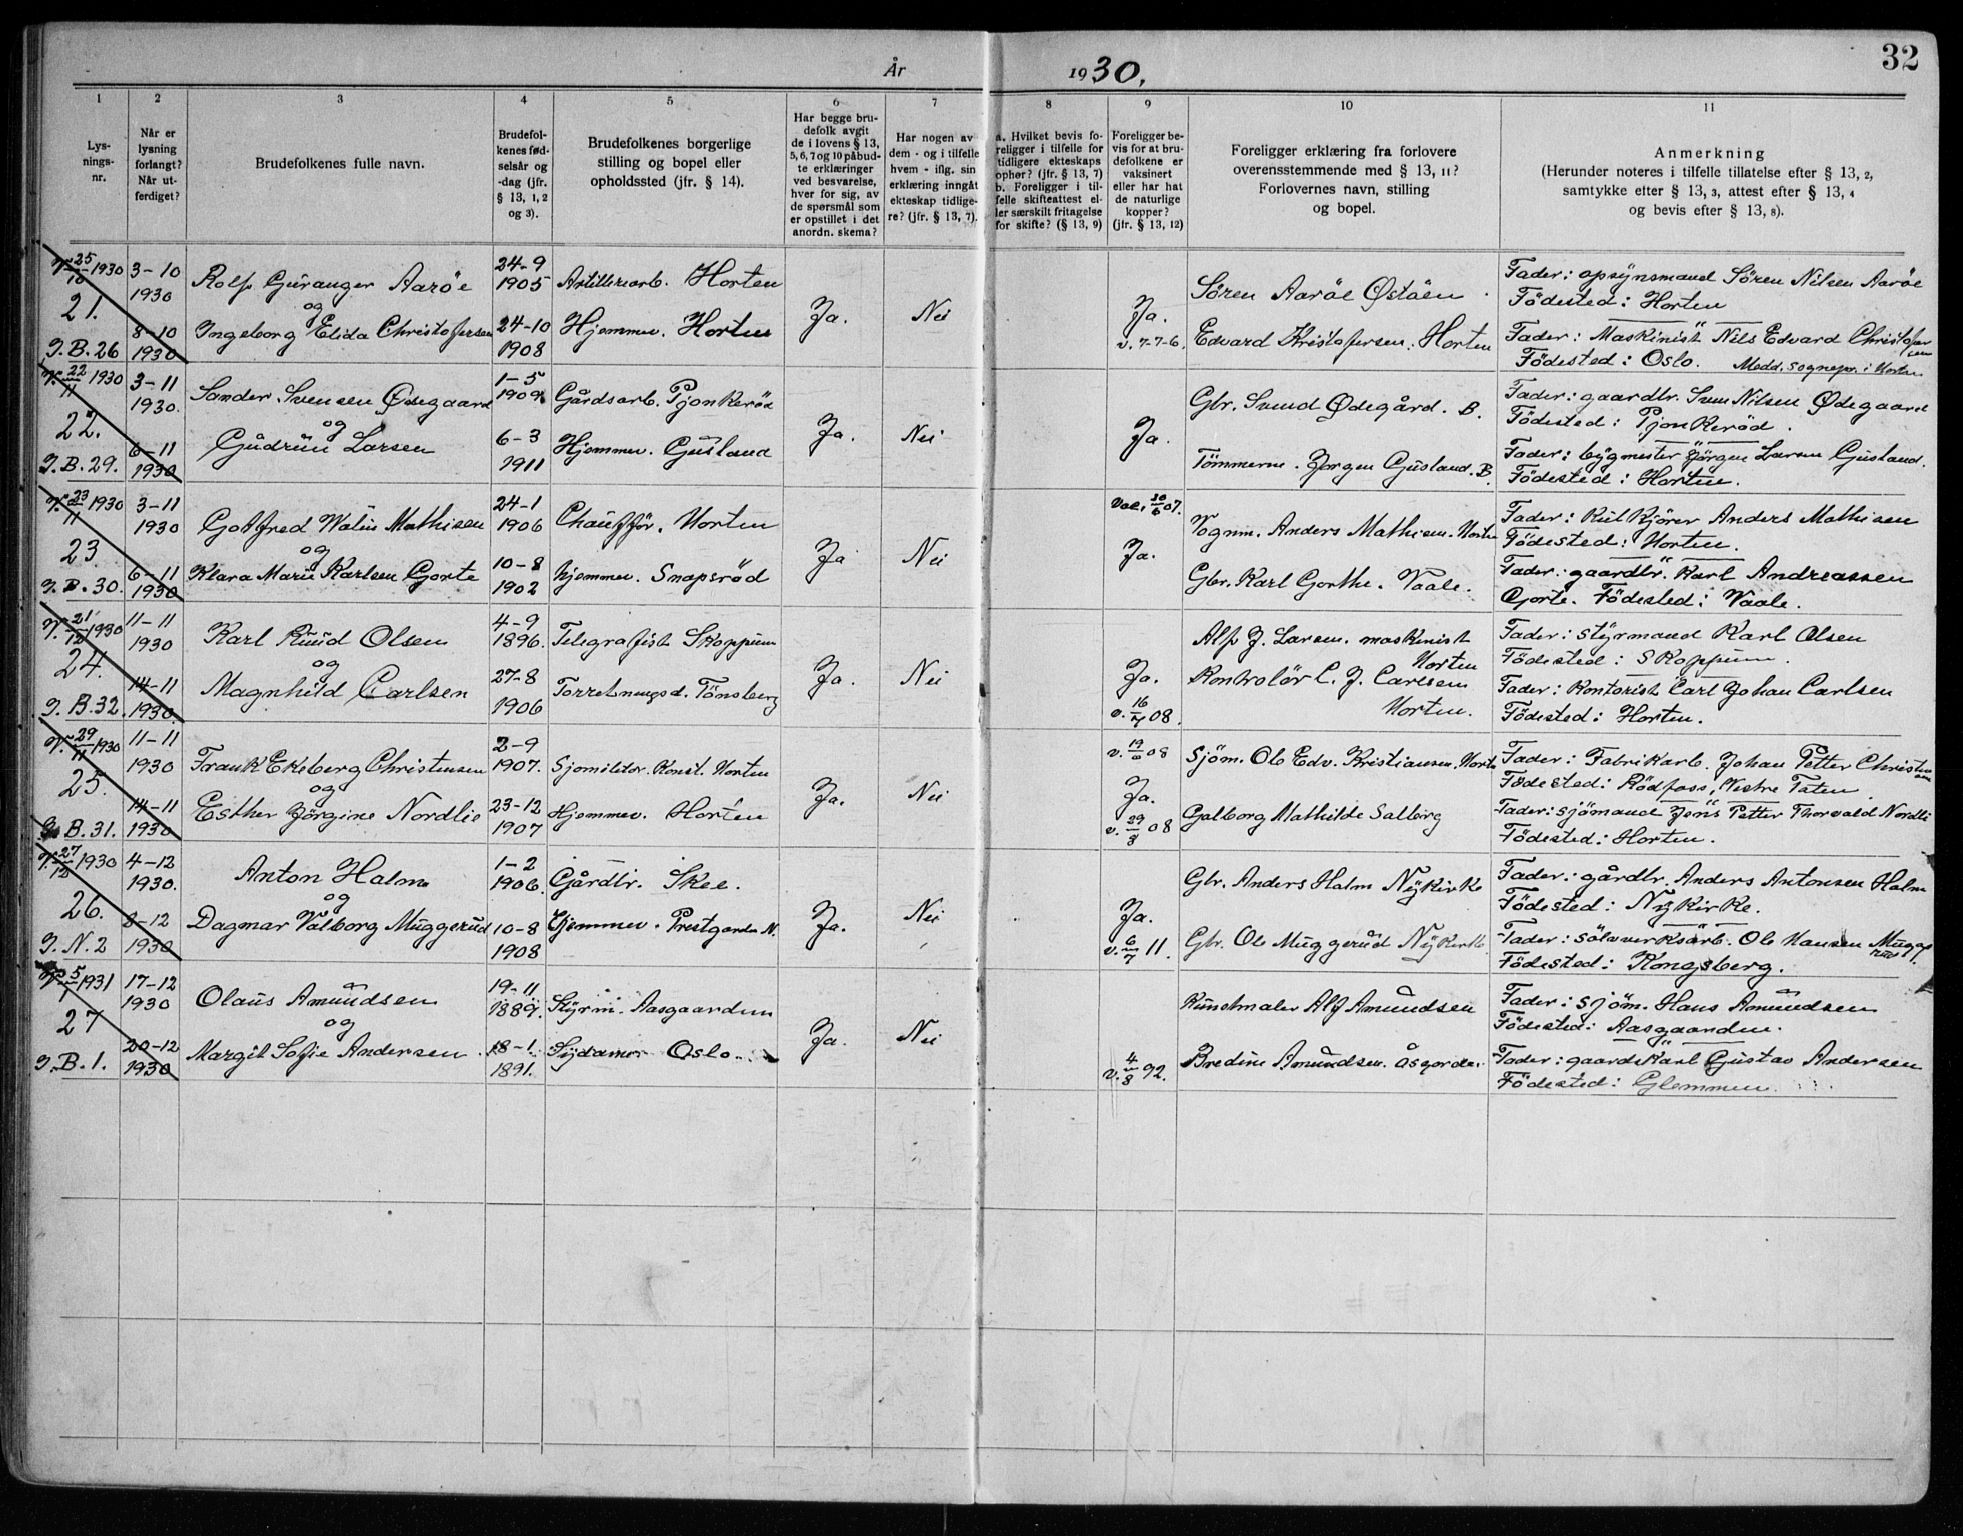 32
År 1930.
1 2 3 4 5 6 7 8 9 10 11
Lys-
nings-
nr.
Når er
lysning
forlangt?
Når ut-
ferdiget?
Brudefolkenes fulle navn.
Brudefol-
kenes fød-
selsår og
-dag (jfr.
§ 13, 1, 2
og 3).
Brudefolkenes borgerlige
stilling og bopel eller
opholdssted (jfr. § 14).
Har begge bru-
defolk avgit
de i lovens § 13,
5, 6, 7 og 10 påbud-
te erklæringer
ved besvarelse,
hver for sig, av
de spørsmål som
er opstillet i det
anordn. skema?
Har nogen av
dem - og i tilfelle
hvem - iflg. sin
erklæring inngått
ekteskap tidlige-
re? (jfr. § 13, 7).
a. Hvilket bevis fo-
religger i tilfelle for
tidligere ekteskaps
ophør? (jfr. § 13, 7)
b. Foreligger i til-
felle skifteattest el-
ler særskilt fritagelse
for skifte? (§ 13, 9)
Foreligger be-
vis for at bru-
defolkene er
vaksinert
eller har hat
de naturlige
kopper?
(jfr. § 13, 12)
Foreligger erklæring fra forlovere
overensstemmende med § 13, 11?
Forlovernes navn, stilling
og bopel.
Anmerkning
(Herunder noteres i tilfelle tillatelse efter § 13, 2,
samtykke efter § 13, 3, attest efter § 13, 4
og bevis efter § 13, 8).
V. 25/10 1930
21.
J.B. 26
3-10
1930
8-10
1930
Rolf Guranger Aarøe
og
Ingeborg Elida Christofersen
24-9
1905
24-10
1908
Artilleriarb. Horten
Hjemmev. Horten
Ja.
Nei
Ja.
v. 7-7-6.
Sören Aaröe Østöen
Edvard Kristofersen. Horten
Fader: opsynsmand Sören Nilsen Aaröe
Födested: Horten
Fader: Maskinist Nils Edvard Christofer
sen
Födested: Oslo. Medd. sognepr. i Horten
V. 22/11 1930
22.
J.B. 29.
3-11
1930.
6-11
1930
Sander Svensen Ødegaard
og
Gudrun Larsen
1-5
1909
6-3
1911
Gårdsarb. Pjonkeröd
Hjemmev. Gusland
Ja.
Nei
Ja.
Gbr. Svend Ødegård. B.
Tömmerm. Jörgen Gusland. B.
Fader: gaardbr. Sven Nilsen Ødegaard
Födested: Pjonkeröd.
Fader: bygmester Jörgen Larsen Gusland.
Födested: Horten.
V. 23/11 1930
23
J.B. 30.
3-11
1930
6-11
1930
Gotfred Walin Mathisen
og
Klara Marie Karlsen Gorte
24-1
1906
10-8
1902
Chauffør. Horten
hjemmev. Snapsröd
Ja
Nei
Ja.
Vognm. Anders Mathisen. Horten
Gbr. Karl Gorthe. Vaale.
Fader: Kulkjörer Anders Mathisen
Födested: Horten.
Fader: gaardbr. Karl Andreassen
Gorte. Födested: Vaale.
V. 21/12 1930
24.
J.B. 32.
11-11
1930
14-11
1930.
Karl Ruud Olsen
og
Magnhild Carlsen
4-9
1896.
27-8
1906
Telegrafist Skoppum
Forretningsd. Tönsberg
Ja.
Nei
Ja.
v. 16/7 08.
Alf J. Larsen. maskinist
Horten
Kontrolör C. J. Carlsen
Horten.
Fader: Styrmand Karl Olsen
Födested: Skoppum.
Fader: Kontorist Carl Johan Carlsen
Födested: Horten.
V. 29/11 1930
25.
B. 31.
11-11
1930
14-11
1930
Frank Ekeberg Christensen
og
Esther Jörgine Nordlie
2-9
1907.
23-12
1907
Sjomilitær. Konst. Horten
Hjemmev. Horten
Ja.
Nei
Ja.
v. 29/8 08
Sjöm. Ole Edv. Kristiansen. Horten
Galborg Mathilde Salberg
Fader: Fabrikarb. Johan Petter Christen
sen
Födested: Rödfoss, Vestre Toten
Fader: Sjömand Jens Petter Thorvald Nordli
Födested: Horten.
V. 27/12 1930
26.
J.N. 2
4-12
1930.
8-12
1930
Anton Halm
og
Dagmar Valborg Muggerud
1-2
1906.
10-8
1908
Gårdbr. Skee.
Hjemmev. Prestgarden N.
Ja.
Nei
Ja.
v. 6/7 11.
Gbr. Anders Halm Nykirke
Gbr. Ole Muggerud Nykirke
Fader: gårdbr. Anders Antonsen Halm
Födested: Nykirke.
Fader: Sölvverksarb. Ole Hansen Mugge
rud
Födested: Kongsberg.
V. 5/1 1931
27
J.B. 1.
17-12
1930
20-12
1930
Olaus Amundsen
og
Margit Sofie Andersen
19-11
1889.
18-1
1891.
Styrm. Aasgaarden
Sydame Oslo
Ja.
Nei
v. 4/8 92.
Kunstmaler Alf Amundsen
Bredine Amundsen. Åsgorden
Fader: Sjöm. Hans Amundsen
Födested: Aasgaarden.
Fader: gaardskarl Gustav Andersen
Födested: Glemmen.